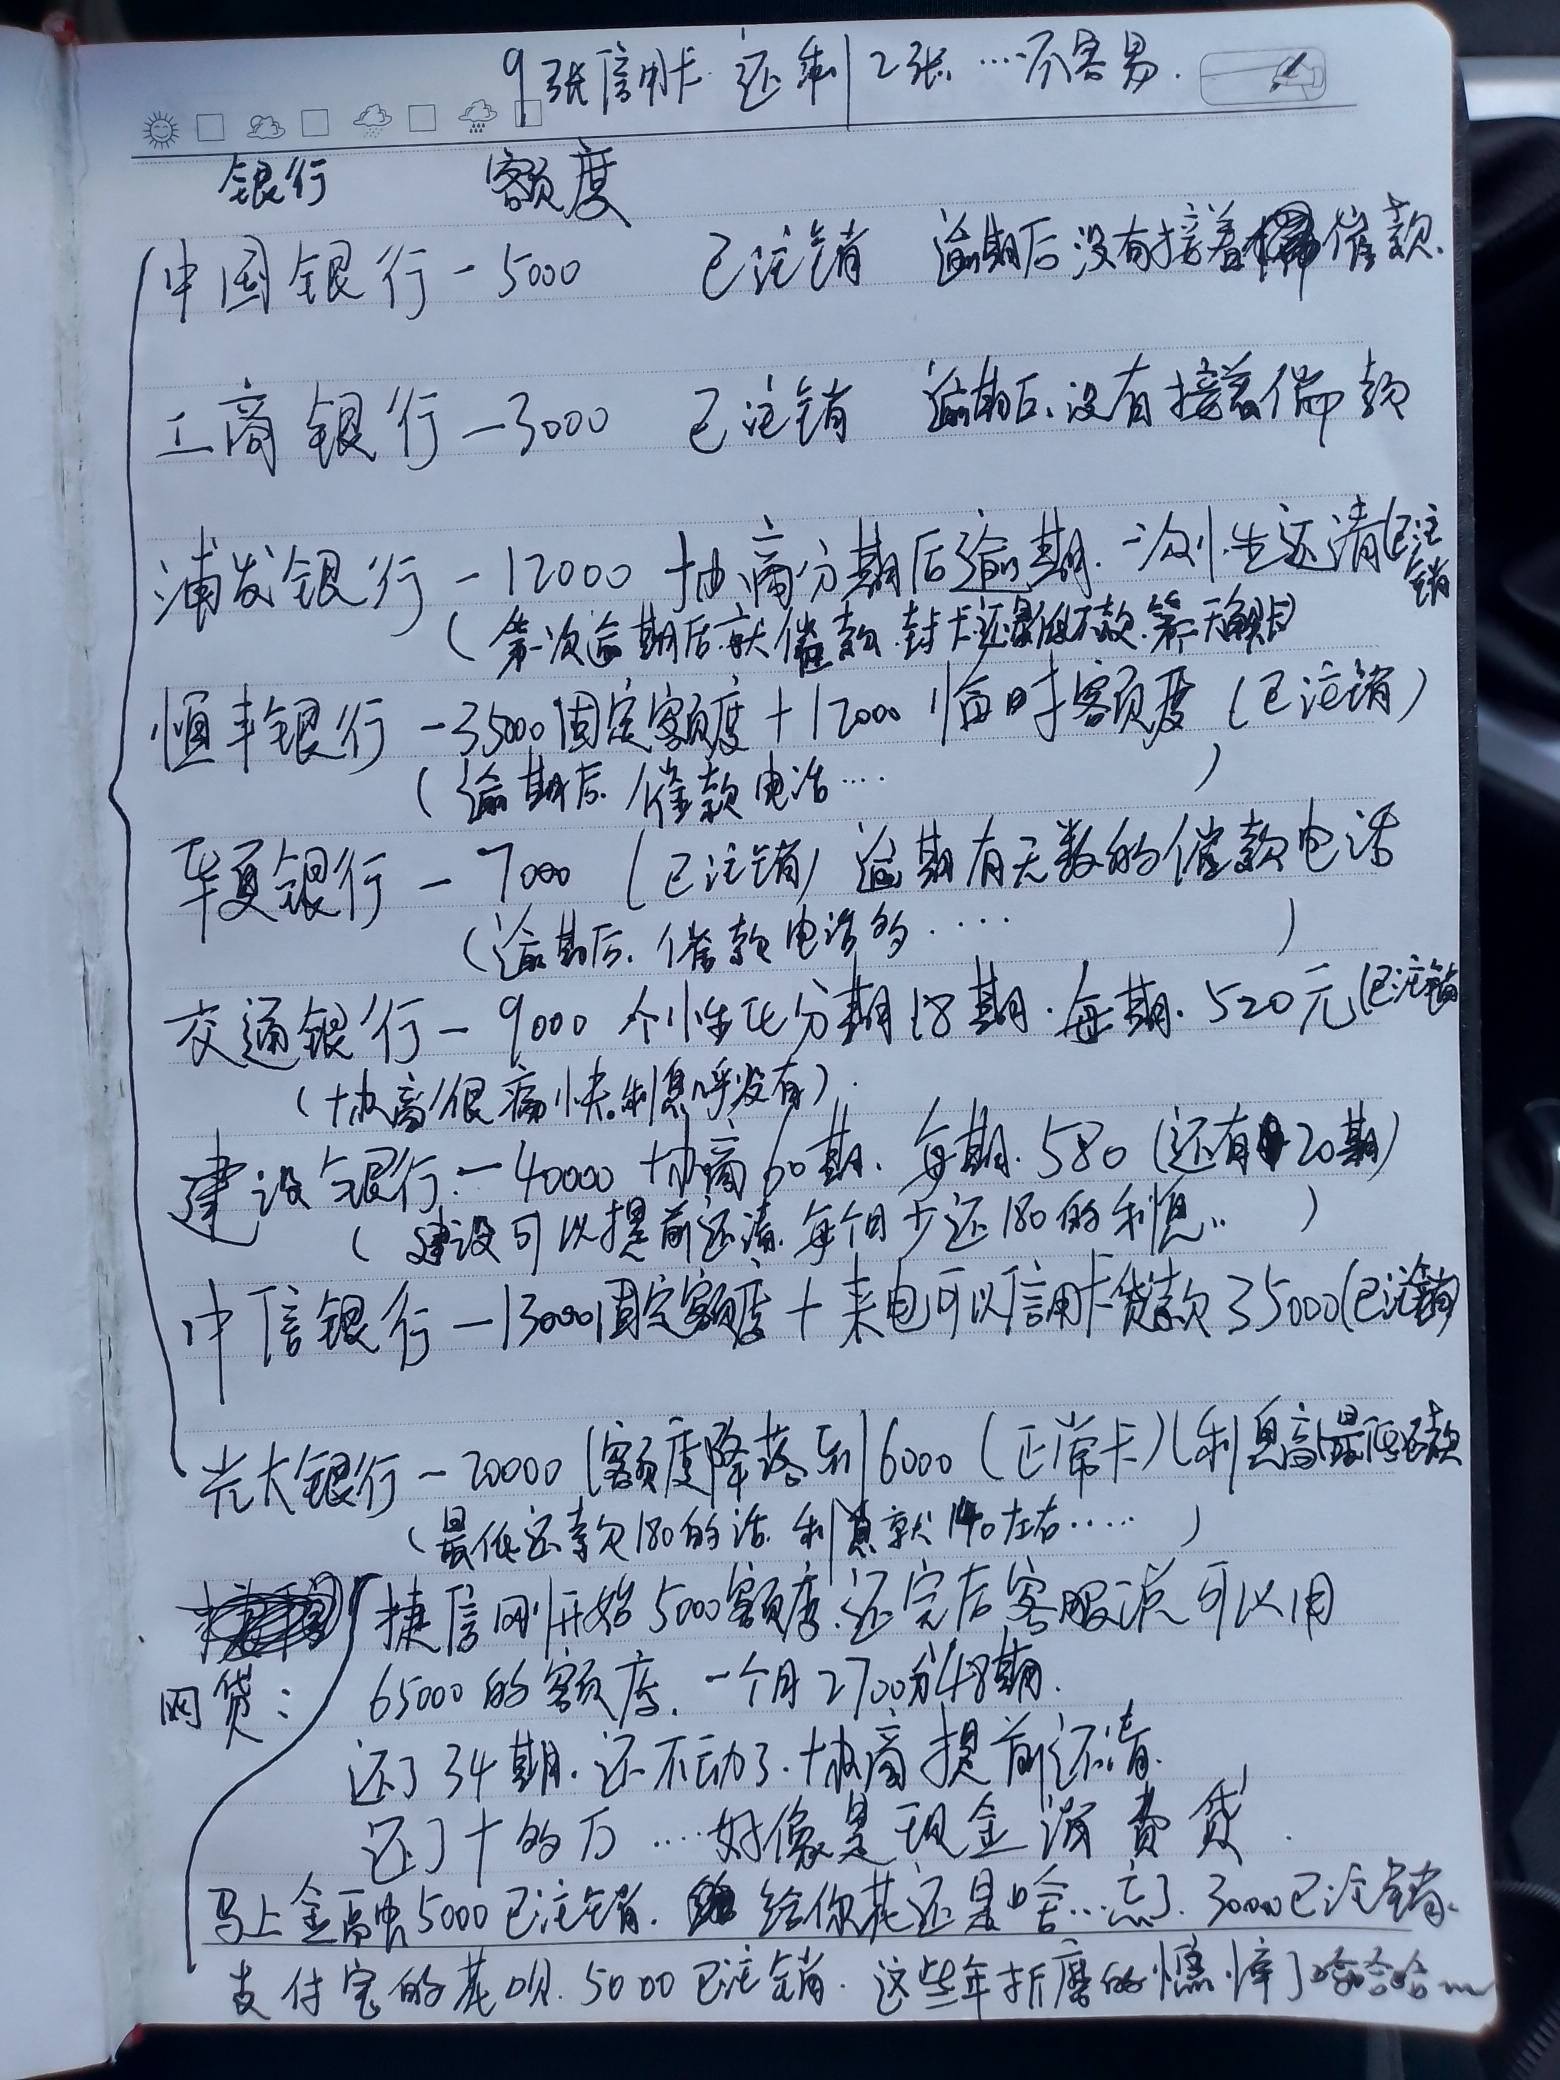 9张信用卡 还剩2张 …不容易.
银行 额度
中国银行-5000 已注销 逾期后没有接着催款.
工商银行-3000 已注销 逾期后.没有接着催款
浦发银行-12000 协商分期后逾期.一次性还清(已注销
(第一次逾期后.就催款.封卡.还最低还款.第二天解卡)
恒丰银行-35000固定额度+12000临时额度(已注销)
(逾期后.催款电话…. )
华夏银行-7000 (已注销)逾期有无数的催款电话
(逾期后.催款电话多.... )
交通银行-9000 个性化分期18期.每期.520元(已注销
(协商很痛快.利息几乎没有).
建设银行:-40000 协商60期.每期.580(还有20期)
(建设可以提前还清.每个月少还180的利息.. )
中信银行-13000固定额度+来电可以信用卡贷款35000(已注销)
光大银行-20000(额度降落到6000(正常卡)(利息高最低还款
(最低还款180的话.利息就140左右….. )
捷信刚开始5000额度.还完后客服说可以用
网贷: 65000的额度.一个月2700分48期.
还了34期.还不动了.协商提前还清.
还了十的万 ….好像是现金消费贷.
马上金融5000已注销. 给你花还是啥…忘了.3000已注销.
支付宝的花呗.5000已注销.这些年折磨的憔悴了哈哈哈